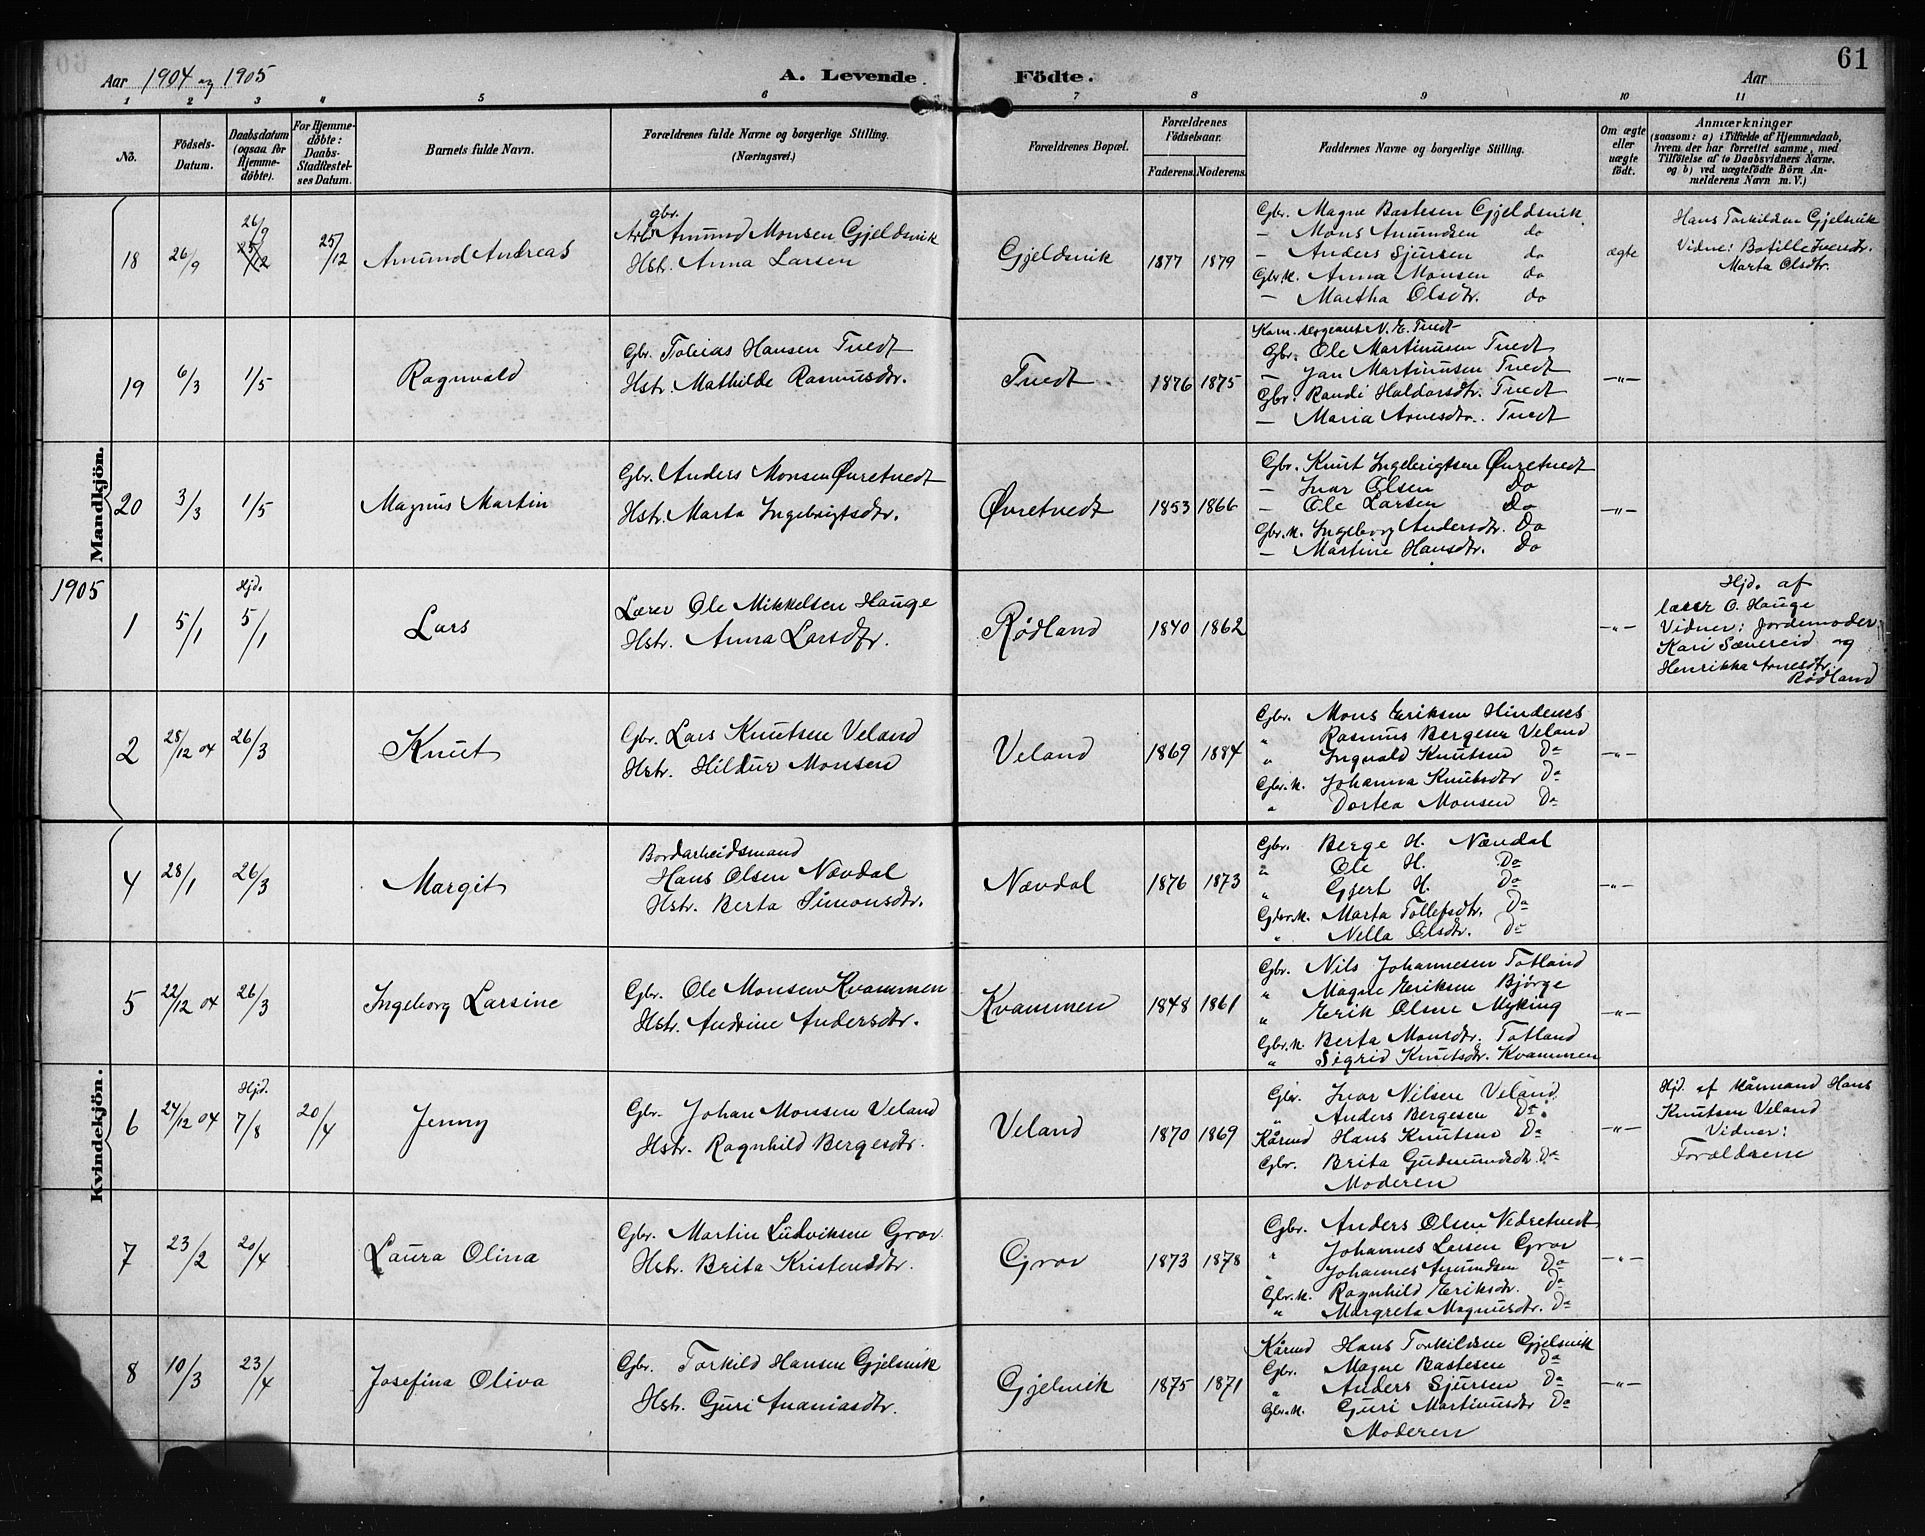 61
Aar 1904 og 1905 A. Levende Födte. Aar
1 2 3 4 5 6 7 8 9 10 11
No.
Födsels-Datum.
Daabsdatum (ogsaa for Hjemmedöbte).
For Hjemmedöbte: Daabs-Stadfæstelses Datum.
Barnets fulde Navn.
Forældrenes fulde Navne og borgerlige Stilling.
(Næringsvei.)
Forældrenes Bopæl.
Forældrenes Födselsaar.
Faderens. Moderens.
Faddernes Navne og borgerlige Stilling.
Om ægte eller uægte födt.
Anmærkninger
(saasom: a) i Tilfælde af Hjemmedaab,
hvem der har forrettet samme, med
Tilföielse af to Daabsvidners Navne.
og b) ved uægtefödte Börn Anmelderens Navn m. V.)
Mandkjön.
18 26/9 26/9 25/12 25/12 Amund Andreas
gbr.
Arb. Amund Monsen Gjeldsvik
Hstr. Anna Larsen
Gjeldsvik 1877 1879
Gbr. Magne Bastesen Gjeldsvik
— Mons Amundsen do
— Anders Sjursen do
Gbr.k. Anna Monsen do
— Martha Olsdtr. do
ægte
Hans Torkildsen Gjelsvik
Vidne: Botille Iversdtr.
Marta Olsdtr.
19 6/3 1/5 Ragnvald
Gbr. Tobias Hansen Tvedt
Hstr. Mathilde Rasmusdtr.
Tvedt 1876 1875
Kom. sergeant N. E. Tvedt
Gbr. Ole Martinusen Tvedt
— Jan Martinusen Tvedt
Gbr. Randi Haldorsdtr. Tvedt
— Maria Arnesdtr. Tvedt
—"—
20 3/3 1/5 Magnus Martin
Gbr. Anders Monsen Øvretvedt
Hstr. Marta Ingebrigtsdtr.
Øvretvedt 1853 1866
Gbr. Knut Ingebrigtsen Øvretvedt
— Ivar Olsen Do
— Ole Larsen Do
Gbr.k. Ingeborg Andersdtr. Do
— Martine Hansdtr. Do
—"—
1905
1 5/1 Hjd. 5/1 Lars
Lærer Ole Mikkelsen Hauge
Hstr. Anna Larsdtr.
Rødland 1840 1862
—"—
Hjd. af
lærer O. Hauge
Vidner: Jordemoder
Kari Sævereid og
Henrikka Arnesdtr.
Rødland
2 28/12 04 26/3 Knut
Gbr. Lars Knutsen Veland
Hstr. Hildur Monsen
Veland 1869 1884
Gbr. Mons Eriksen Hindenes
" Rasmus Bergesen Veland
" Ingvald Knutsen Do
Gbr.k. Johanna Knutsdtr Do
" Dortea Monsen Do
—"—
Kvindekjön.
4 28/1 26/3 Margit
Bordarbeidsmand
Hans Olsen Nævdal
Hstr. Berta Simonsdtr.
Nævdal 1876 1873
Gbr. Berge H. Nævdal
" Ole H. Do
" Gjert H. Do
Gbr.k. Marta Tollefsdtr. Do
" Nella Olsdtr. Do
—"—
5 22/12 04 26/3 Ingeborg Larsine
Gbr. Ole Monsen Kvammen
Hstr. Andrine Andersdtr.
Kvammen 1848 1861
Gbr. Nils Johannesen Totland
" Magne Eriksen Bjørge
" Erik Olsen Myking
Gbr.k. Berta Monsdtr. Totland
" Sigrid Knutsdtr. Kvammen
—"—
6 24/12 04 Hjd. 7/8 20/4 Jenny
Gbr. Johan Monsen Veland
Hstr. Ragnhild Bergesdtr.
Veland 1870 1869
Gbr. Ivar Nilsen Veland
" Anders Bergesen Do
Kårmd Hans Knutsen Do
Gbr. Brita Gudmundsdtr. Do
Moderen
—"—
Hjd. af Kårmand Hans
Knutsen Veland
Vidner:
Forældrene
7 23/2 20/4 Laura Olina
Gbr. Martin Ludviksen Grov
Hstr. Brita Kristensdtr.
Grov 1873 1878
Gbr. Anders Olsen Vedretvedt
" Johannes Larsen Grov
" Johannes Amundsen Do
Gbr.k. Ragnhild Eriksdtr. Do
" Margreta Magnusdtr. Do
—"—
8 10/3 23/4 Josefina Oliva
Gbr. Torkild Hansen Gjelsvik
Hstr. Guri Ananiasdtr.
Gjelsvik 1875 1871
Kårmd Hans Torkildsen Gjelsvik
Gbr. Magne Bastesen Do
" Anders Sjursen Do
Gbr.k. Guri Martinusdtr Do
Moderen
—"—